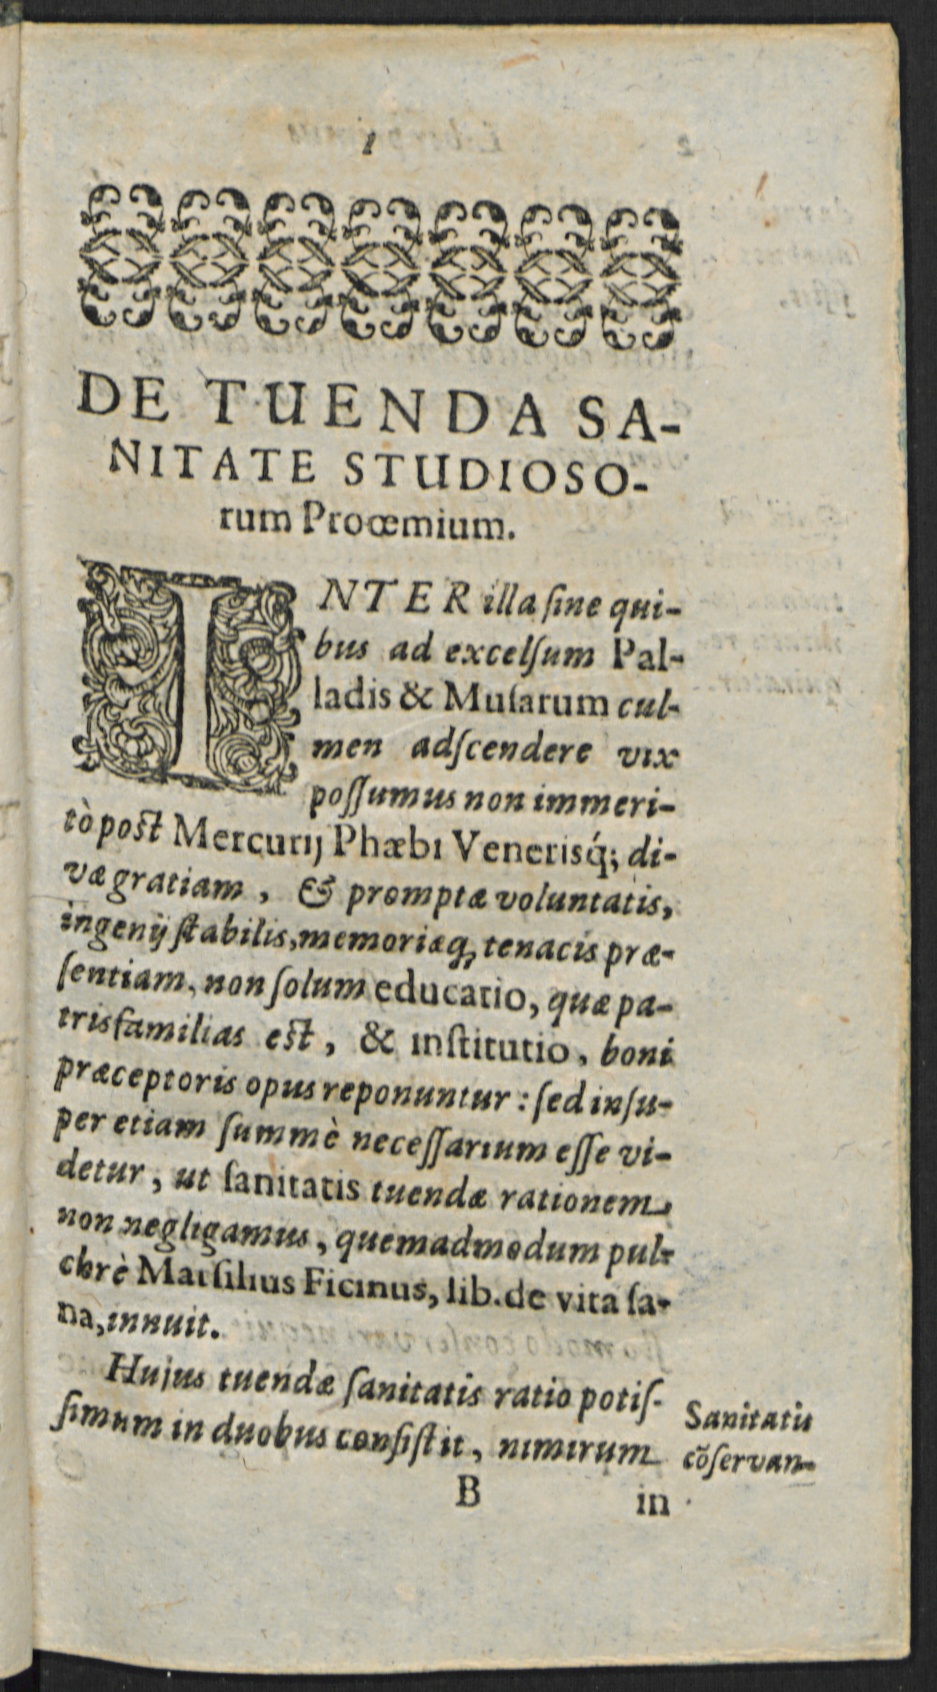 1
DE TUENDA SA-
NITATE STUDIOSO-
rum Proœmium.
INTER illa ſine qui-
bus ad excelſum Pal-
ladis & Muſarum cul-
men adſcendere vix
poſſumus non immeri-
tò poſt Mercurij Phæbi Venerisq́; di-
væ gratiam, & promptæ voluntatis,
ingenij ſtabilis, memoriæq, tenacis præ-
ſentiam, non ſolum educatio, quæ pa-
trisfamilias eſt, & inſtitutio, boni
præceptoris opus reponuntur: ſed inſu-
per etiam ſummè neceſſarium eſſe vi-
detur, ut ſanitatis tuendæ rationem
non negligamus, quemadmodum pul-
chrè Marſilius Ficinus, lib. de vita ſa-
na, innuit.
Hujus tuendæ ſanitatis ratio potiſ-
ſimum in duobus conſiſtit, nimirum
Sanitatis
cõſervan-
B
in